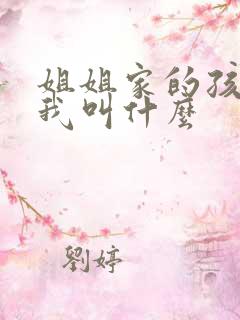 姐姐家的孩
我叫什麼
劉婷